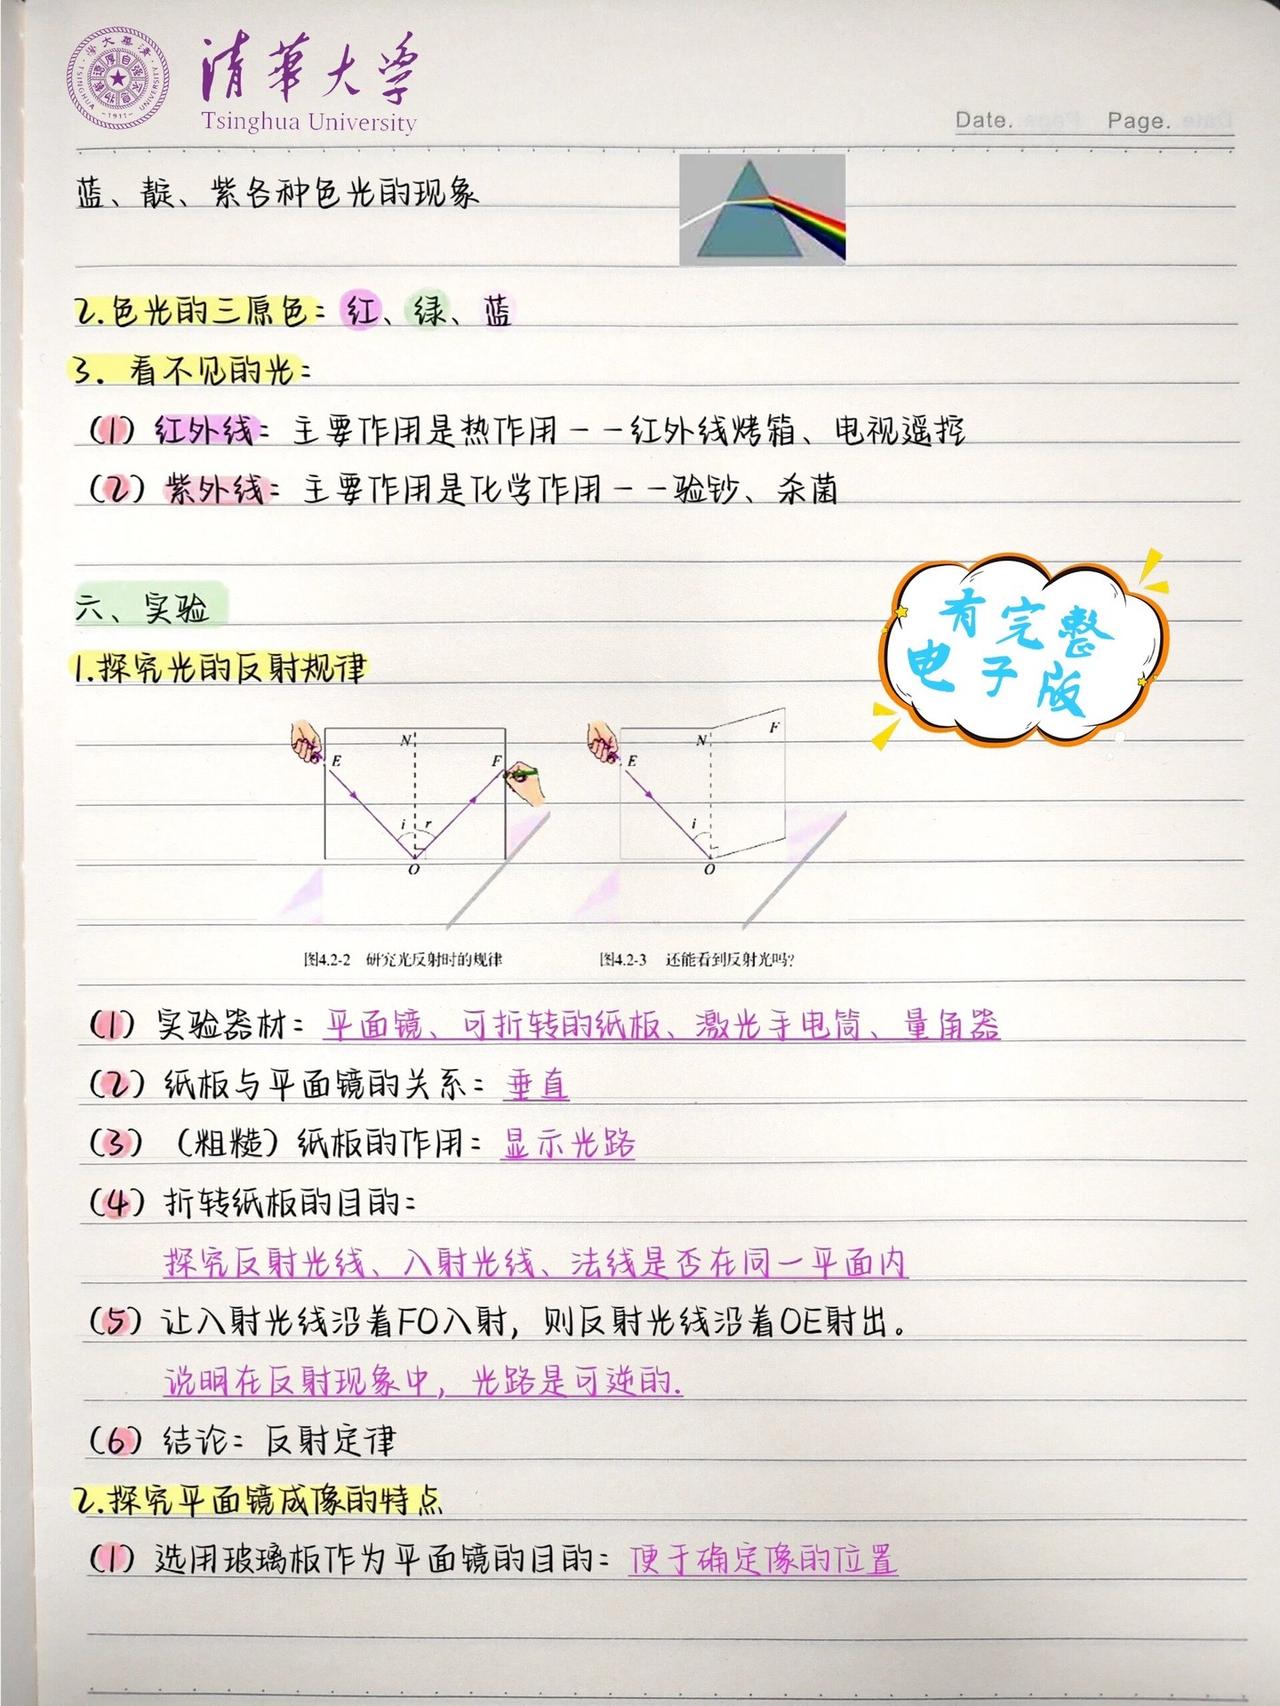 清華大学
Tsinghua University
Date. Page.
蓝、靛、紫各种色光的现象
2.色光的三原色：红、绿、蓝
3. 看不见的光：
（1）红外线：主要作用是热作用－－红外线烤箱、电视遥控
（2）紫外线：主要作用是化学作用－－验钞、杀菌
六、实验
有完整
电子版
1.探究光的反射规律
E N F i r O
E N F i O
图4.2-2 研究光反射时的规律
图4.2-3 还能看到反射光吗?
（1）实验器材：平面镜、可折转的纸板、激光手电筒、量角器
（2）纸板与平面镜的关系：垂直
（3）（粗糙）纸板的作用：显示光路
（4）折转纸板的目的：
探究反射光线、入射光线、法线是否在同一平面内
（5）让入射光线沿着FO入射，则反射光线沿着OE射出。
说明在反射现象中，光路是可逆的.
（6）结论：反射定律
2.探究平面镜成像的特点
（1）选用玻璃板作为平面镜的目的：便于确定像的位置